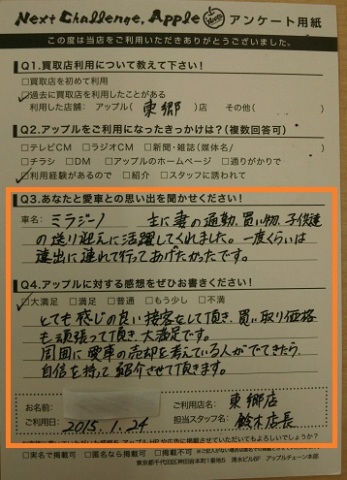 Next Challenge, Apple アンケート用紙
この度は当店をご利用いただきありがとうございました。
Q1.買取店利用について教えて下さい!
□買取店を初めて利用
☑過去に買取店を利用したことがある
利用した店舗: アップル( 東郷 )店 その他( )
Q2.アップルをご利用になったきっかけは?(複数回答可)
□テレビCM □ラジオCM □新聞・雑誌(媒体名/ )
□チラシ □DM □アップルのホームページ □通りがかりで
☑利用経験があるので □紹介 □スタッフに誘われて
Q3.あなたと愛車との思い出を聞かせください!
車名: ミラジーノ 主に妻の通勤、買い物、子供達
の送り迎えに活躍してくれました。一度くらいは
遠出に連れて行ってあげたかったです。
Q4.アップルに対する感想をぜひお書きください!
☑大満足 □満足 □普通 □もう少し □不満
とても感じの良い接客をして頂き、買い取り価格
も頑張って頂き、大満足です。
周囲に愛車の売却を考えている人がでてきたら、
自信を持って紹介させて頂きます。
お名前:
ご利用日: 2015.1.24
ご利用店名: 東郷店
担当スタッフ名: 鈴木店長
□実名で掲載可 □匿名なら掲載可 □掲載不可
東京都千代田区神田岩本町1番地1 清水ビル6F アップルチェーン本部